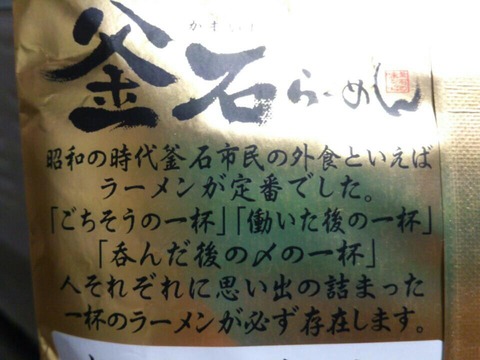 かまいし
釜石らーめん
昭和の時代釜石市民の外食といえば
ラーメンが定番でした。
「ごちそうの一杯」「働いた後の一杯」
「呑んだ後の〆の一杯」
人それぞれに思い出の詰まった
一杯のラーメンが必ず存在します。